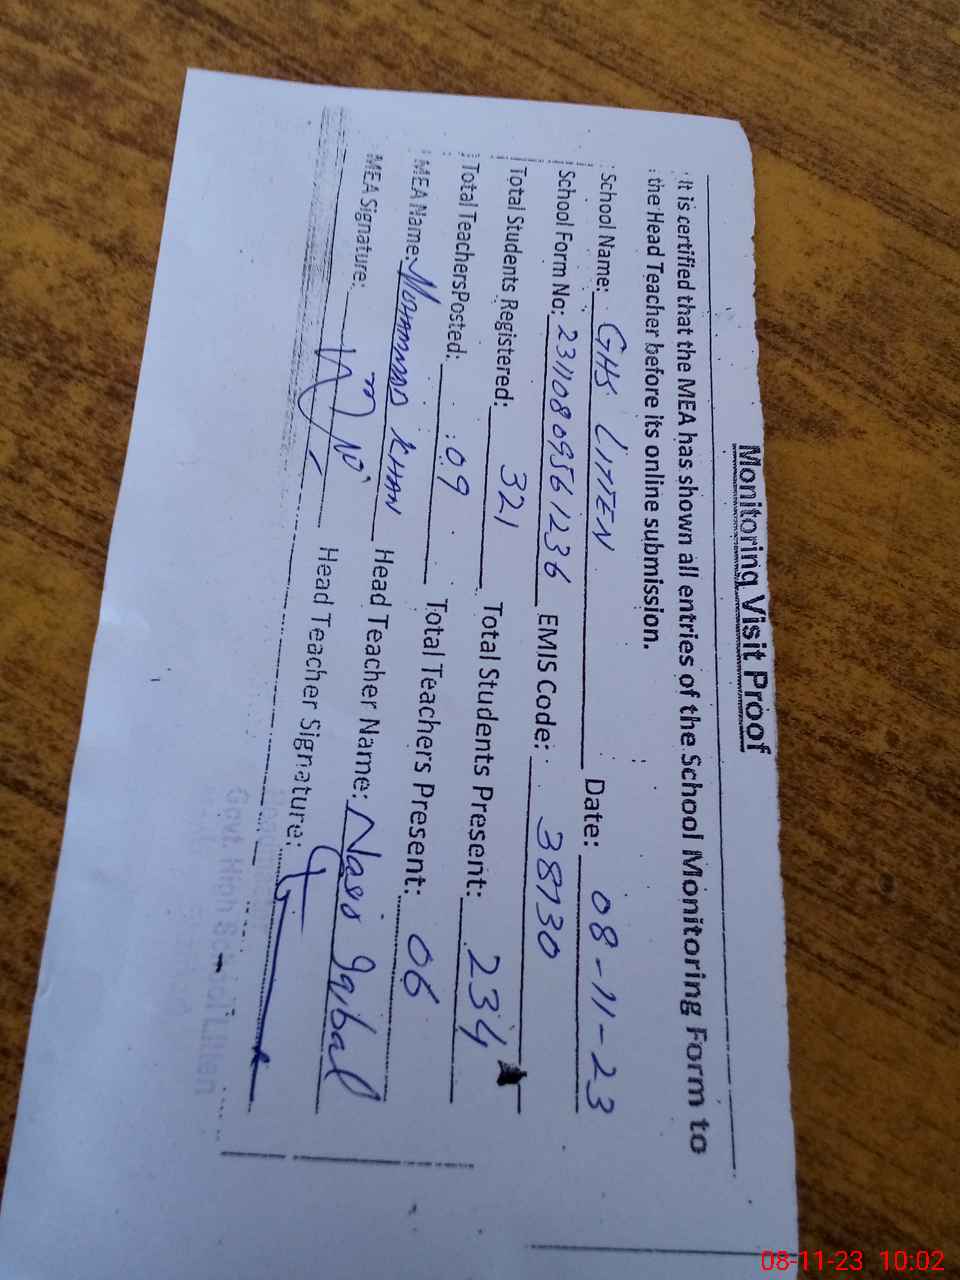 Monitoring Visit Proof
It is certified that the MEA has shown all entries of the School Monitoring Form to
the Head Teacher before its online submission.
School Name: GHS LITTEN Date: 08-11-23
School Form No: 23110809561236 EMIS Code: 38130
Total Students Registered: 321 Total Students Present: 234
Total TeachersPosted: 09 Total Teachers Present: 06
MEA Name: MOHAMMAD KHAN Head Teacher Name: Nasir Iqibal
MEA Signature: Head Teacher Signature:
Govt. High School
08-11-23 10:02